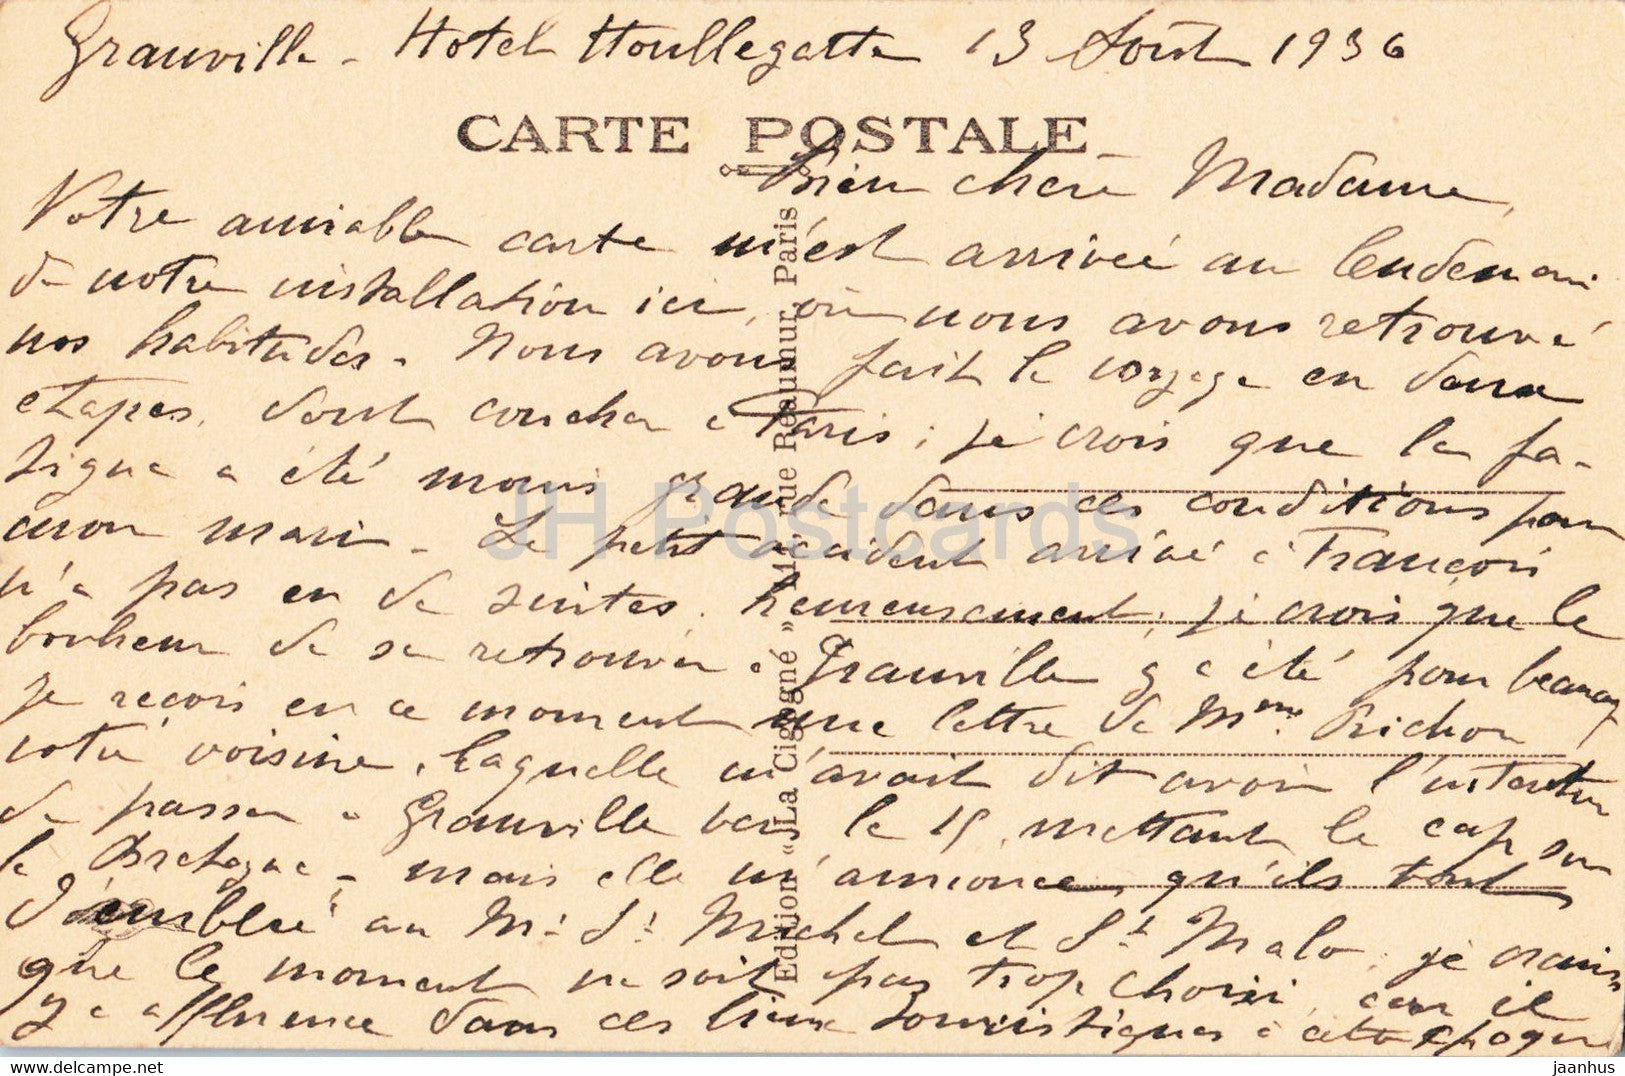 Granville - Hotel Houllegatte 13 Août 1936
CARTE POSTALE
Bien chère Madame,
Votre aimable carte m'est arrivée au lendemain
de notre installation ici, où nous avons retrouvé
nos habitudes. Nous avons fait le voyage en deux
étapes, dont coucher à Paris; je crois que la fa-
tigue a été moins grande dans ces conditions pour
mon mari. Le petit accident arrivé à François
n'a pas eu de suites, heureusement; je crois que le
bonheur de se retrouver à Granville y a été pour beaucoup
Je reçois en ce moment une lettre de Mme. Richon
votre voisine, laquelle m'avait dit avoir l'intention
de passer à Granville vers le 15, mettant le cap sur
la Bretagne - mais elle m'annonce qu'ils vont
d'emblée au Mt St Michel et St Malo. je crains
que le moment ne soit pas trop choisi, car il
y a affluence dans ces lieux touristiques à cette époque
Edition « La Cigogne » rue Réaumur, Paris
JH Postcards
www.jhpostcards.com
jaanhus